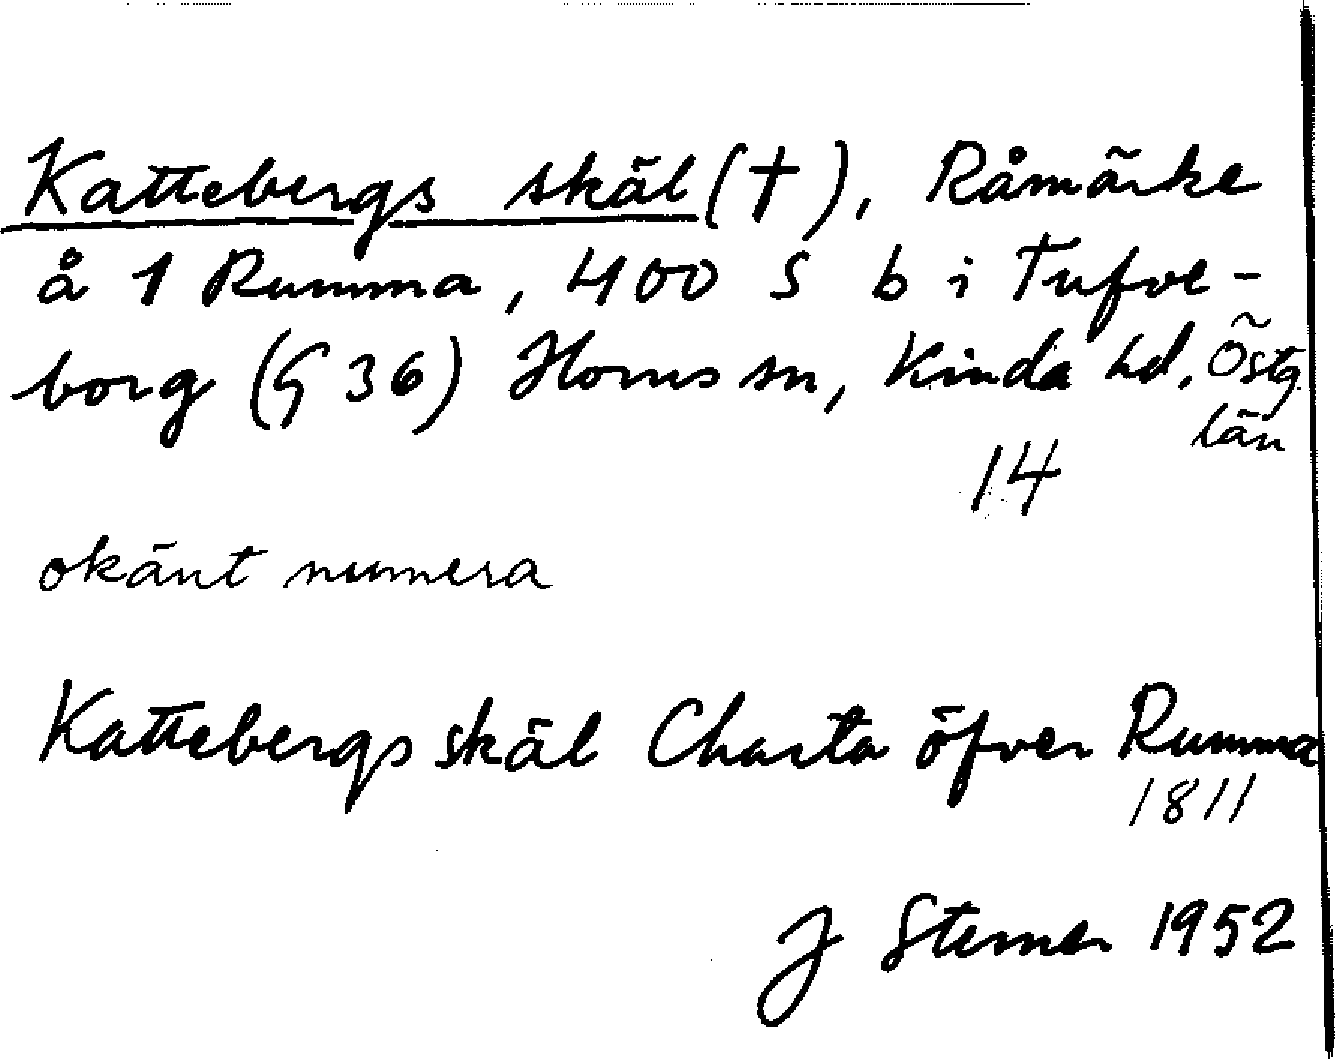 Kattebergs skäl (†), Råmärke
å 1 Rumma, 400 S b i Tufve-
borg (§ 36) Horns sn, Kinda hd, Östg.
län
14
okänt numera
Kattebergs skäl Charta öfver Rumma
1811
J Sterner 1952